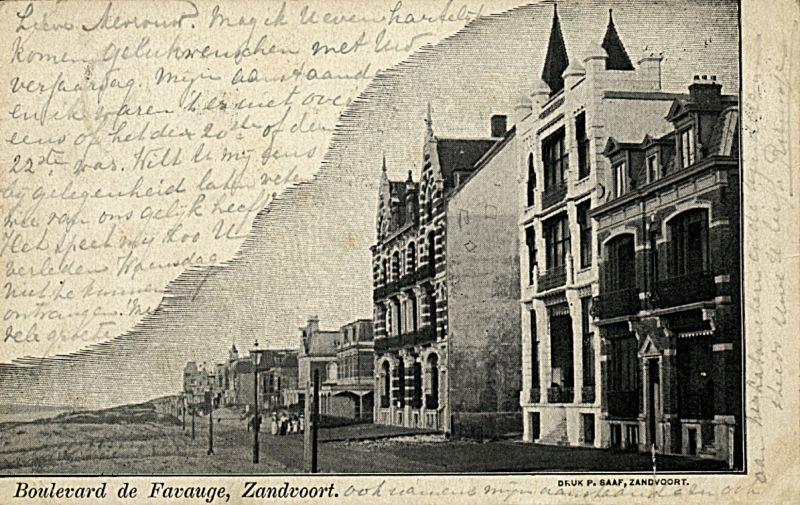 Lieve Mevrouw. Mag ik U even hartelijk
komen gelukwenschen met Uw
verjaardag. Mijn aanstaande
en ik waren het niet over
eens of het den 20ste of den
22ste was. Wilt U mij eens
bij gelegenheid laten weten
wie van ons gelijk heeft
Het speet mij zoo U
verleden Woensdag
niet te kunnen
ontvangen. Met
vele groeten
Boulevard de Favauge, Zandvoort.
DRUK P. SAAF, ZANDVOORT.
ook namens mijn aanstaande aan